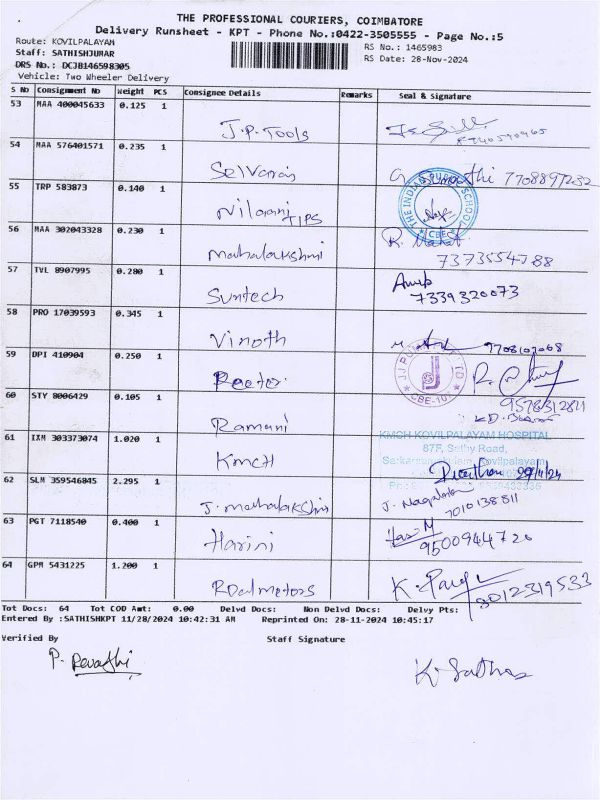 THE PROFESSIONAL COURIERS, COIMBATORE
Delivery Runsheet - KPT - Phone No.:0422-3505555 - Page No.:5
Route: KOVILPALAYAM
RS No.: 1465983
Staff: SATHISHJUMAR
DRS No.: DCJB146598305
RS Date: 28-Nov-2024
Vehicle: Two Wheeler Delivery
S No Consignment No Weight PCS Consignee Details Remarks Seal & Signature
53 MAA 400045633 0.125 1
J.P. Tools
54 MAA 576401571 0.235 1
Selvaraj
7708897232
55 TRP 583873 0.140 1
TIPS
THE INDIAN PUBLIC SCHOOL CBE
56 MAA 302043328 0.230 1
Mahalakshmi
R.
7373554788
57 TVL 8907995 0.280 1
Suntech
7339320073
58 PRO 17039593 0.345 1
Vinoth
9708107068
59 DPI 410904 0.250 1
CBE-107
9578312811
60 STY 8006429 0.105 1
Ramani
61 IXM 303373074 1.020 1
KMCH
KMCH KOVILPALAYAM HOSPITAL
87F, Sathy Road,
Kovilpalayam
29/11/24
62 SLM 359546845 2.295 1
J. Mahalakshmi
7010138811
63 PGT 7118540 0.400 1
Harini
9500944726
64 GPM 5431225 1.200 1
8012319533
Tot Docs: 64 Tot COD Amt: 0.00 Delvd Docs: Non Delvd Docs: Delvy Pts:
Entered By :SATHISHKPT 11/28/2024 10:42:31 AM Reprinted On: 28-11-2024 10:45:17
Verified By Staff Signature
P. Revathi